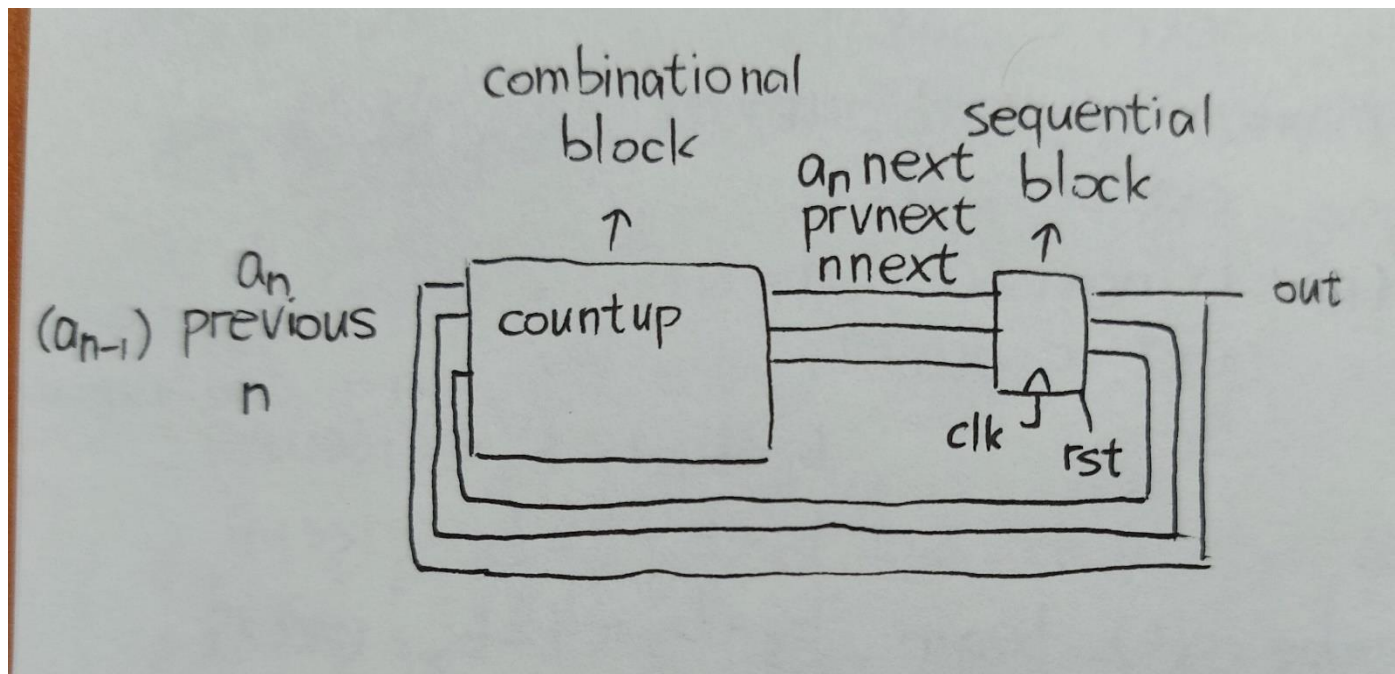 combinational
block
sequential
block
an next
prvnext
nnext
an
(an-1) previous
n
countup
out
clk
rst